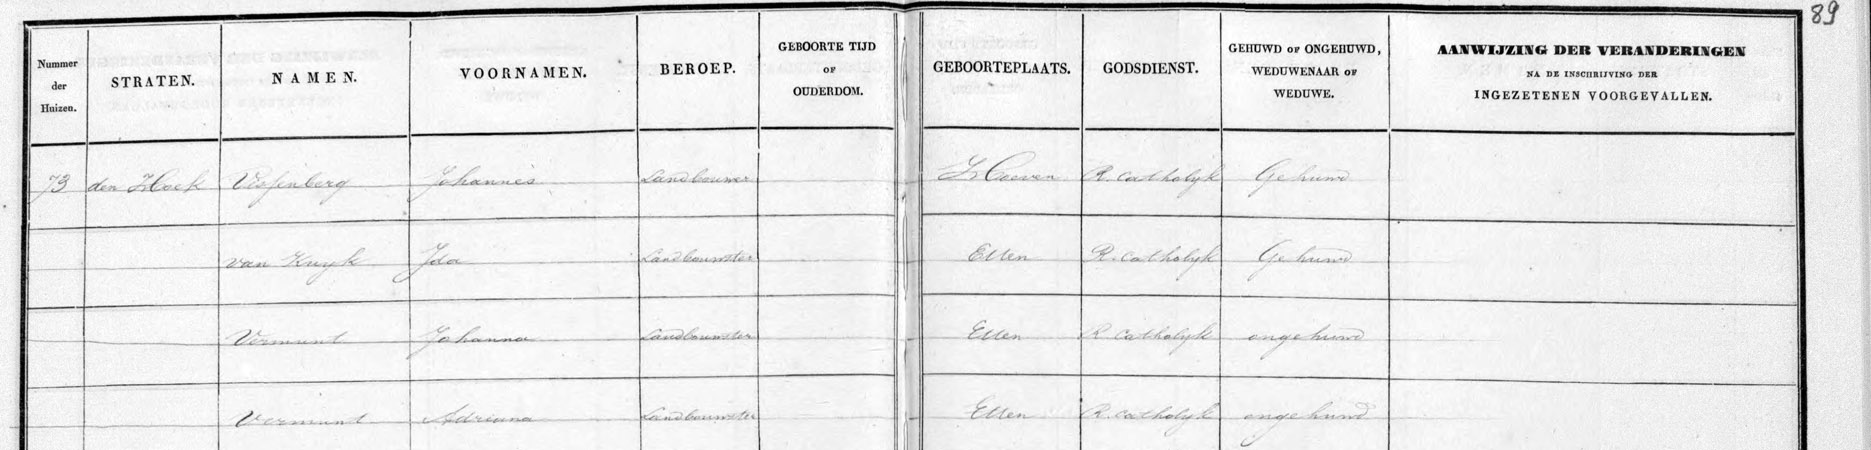 89
Nummer der Huizen. STRATEN. NAMEN. VOORNAMEN. BEROEP. GEBOORTE TIJD OF OUDERDOM. GEBOORTEPLAATS. GODSDIENST. GEHUWD OF ONGEHUWD, WEDUWENAAR OF WEDUWE. AANWIJZING DER VERANDERINGEN NA DE INSCHRIJVING DER INGEZETENEN VOORGEVALLEN.
73 den Hoek Johannes Landbouwer Hoeven R. Catholyk Gehuwd
van Kuyk Ida Landbouwster Etten R. Catholyk Gehuwd
Vermunt Johanna Landbouwster Etten R. Catholyk ongehuwd
Vermunt Adriana Landbouwster Etten R. Catholyk ongehuwd